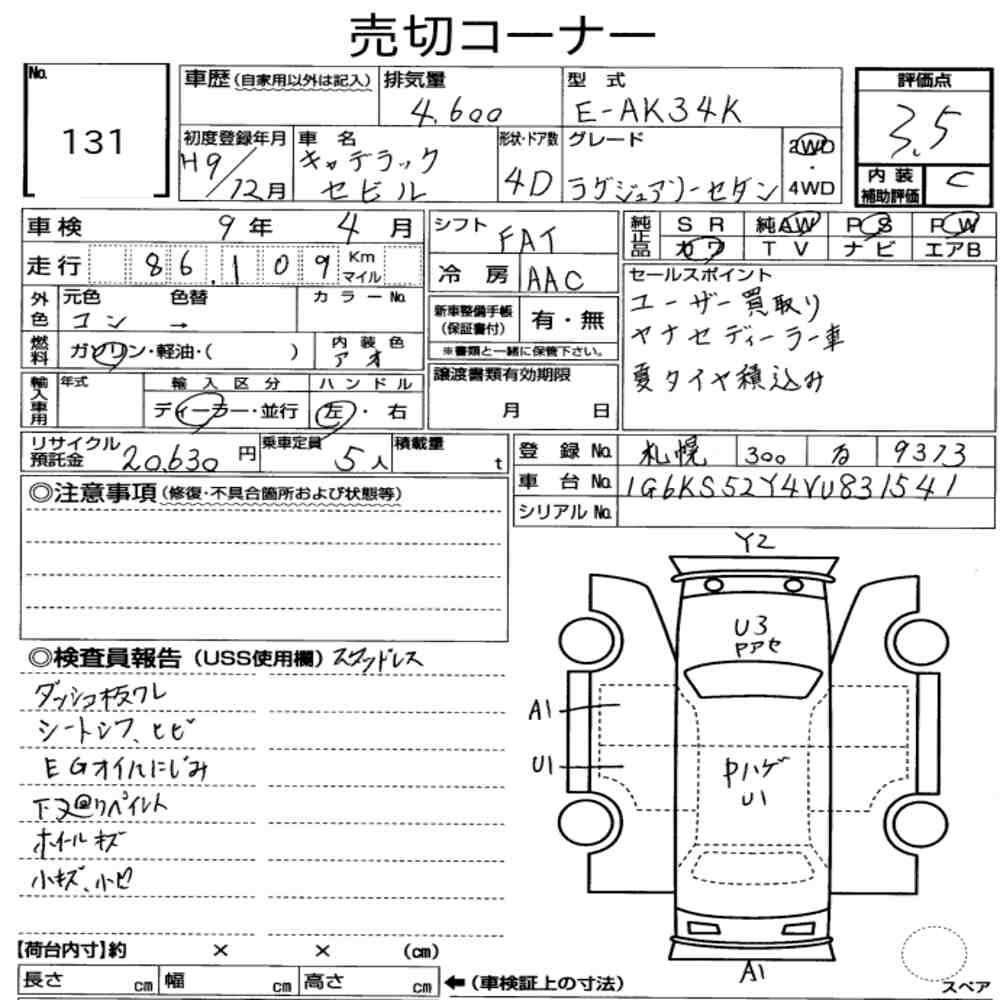 売切コーナー
No.
131
車歴 (自家用以外は記入)
排気量
4,600
型式
E-AK34K
評価点
3.5
内装補助評価
C
初度登録年月
H9/12月
車名
キャデラック
セビル
形状・ドア数
4D
グレード
ラグジュアリーセダン
2WD
・
4WD
車検 9年 4月
走行 86,109 Km マイル
外色
元色 色替
コン →
カラーNo.
燃料
ガソリン・軽油・( )
内装色
アオ
輸入車用
年式
輸入区分
ディーラー・並行
ハンドル
左・右
リサイクル預託金
20,630円
乗車定員
5人
積載量
t
シフト
FAT
冷房
AAC
新車整備手帳
(保証書付)
有・無
※書類と一緒に保管下さい。
譲渡書類有効期限
月 日
純正品
SR 純AW PS PW
カワ TV ナビ エアB
セールスポイント
ユーザー買取り
ヤナセディーラー車
夏タイヤ積込み
登録No. 札幌 300 る 9373
車台No. 1G6KS52Y4VU831541
シリアルNo.
◎注意事項 (修復・不具合箇所および状態等)
◎検査員報告 (USS使用欄) スタッドレス
ダッシュ板ワレ
シートシワ、ヒビ
EGオイルにじみ
下廻りペイント
ホイールキズ
小キズ、小凹
Y2
U3
Pアセ
A1
U1
Pハゲ
U1
A1
スペア
【荷台内寸】約 × × (cm)
長さ cm 幅 cm 高さ cm ←(車検証上の寸法)